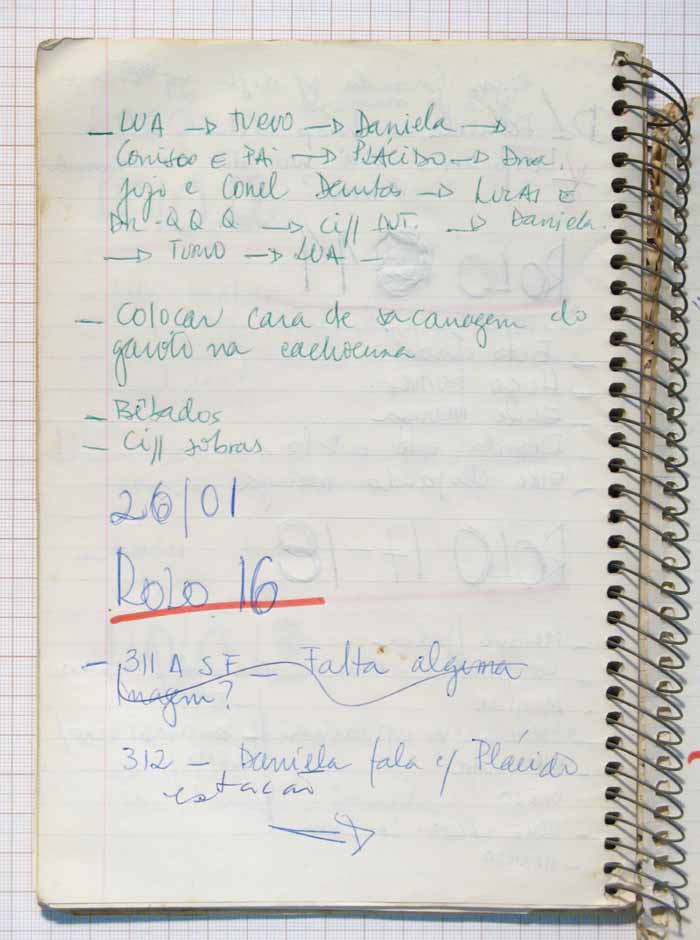 – LUA → TURVO → Daniela →
E PAI → PLÁCIDO → Dna.
Jujo e Conel Dentos → LUCAS E
DR. QQQ → Ci// INT. → Daniela.
→ TURVO → LUA –
– COLOCAR cara de sacanagem do
garoto na cachoeira
– Bêbados
– Ci// sobras
26/01
ROLO 16
– 311 A S F – Falta alguma
Imagem?
312 – Daniela fala c/ Plácido
estação
→